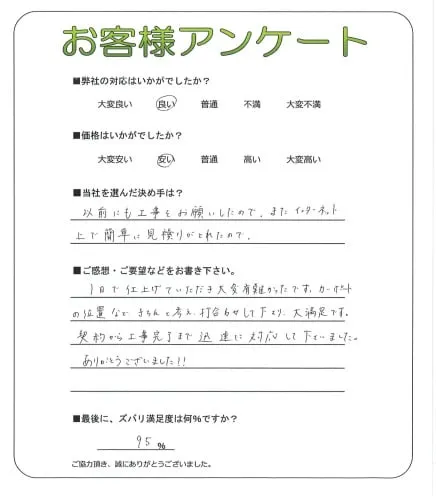 お客様アンケート
■弊社の対応はいかがでしたか？
大変良い 良い 普通 不満 大変不満
■価格はいかがでしたか？
大変安い 安い 普通 高い 大変高い
■当社を選んだ決め手は？
以前にも工事をお願いしたので、またインターネット
上で簡単に見積りがとれたので。
■ご感想・ご要望などをお書き下さい。
1日で仕上げていただき大変有難かったです。カーポート
の位置など、きちんと考え、打合わせして下さり、大満足です。
契約から工事完了まで迅速に対応して下さいました。
ありがとうございました!!
■最後に、ズバリ満足度は何％ですか？
95 %
ご協力頂き、誠にありがとうございました。